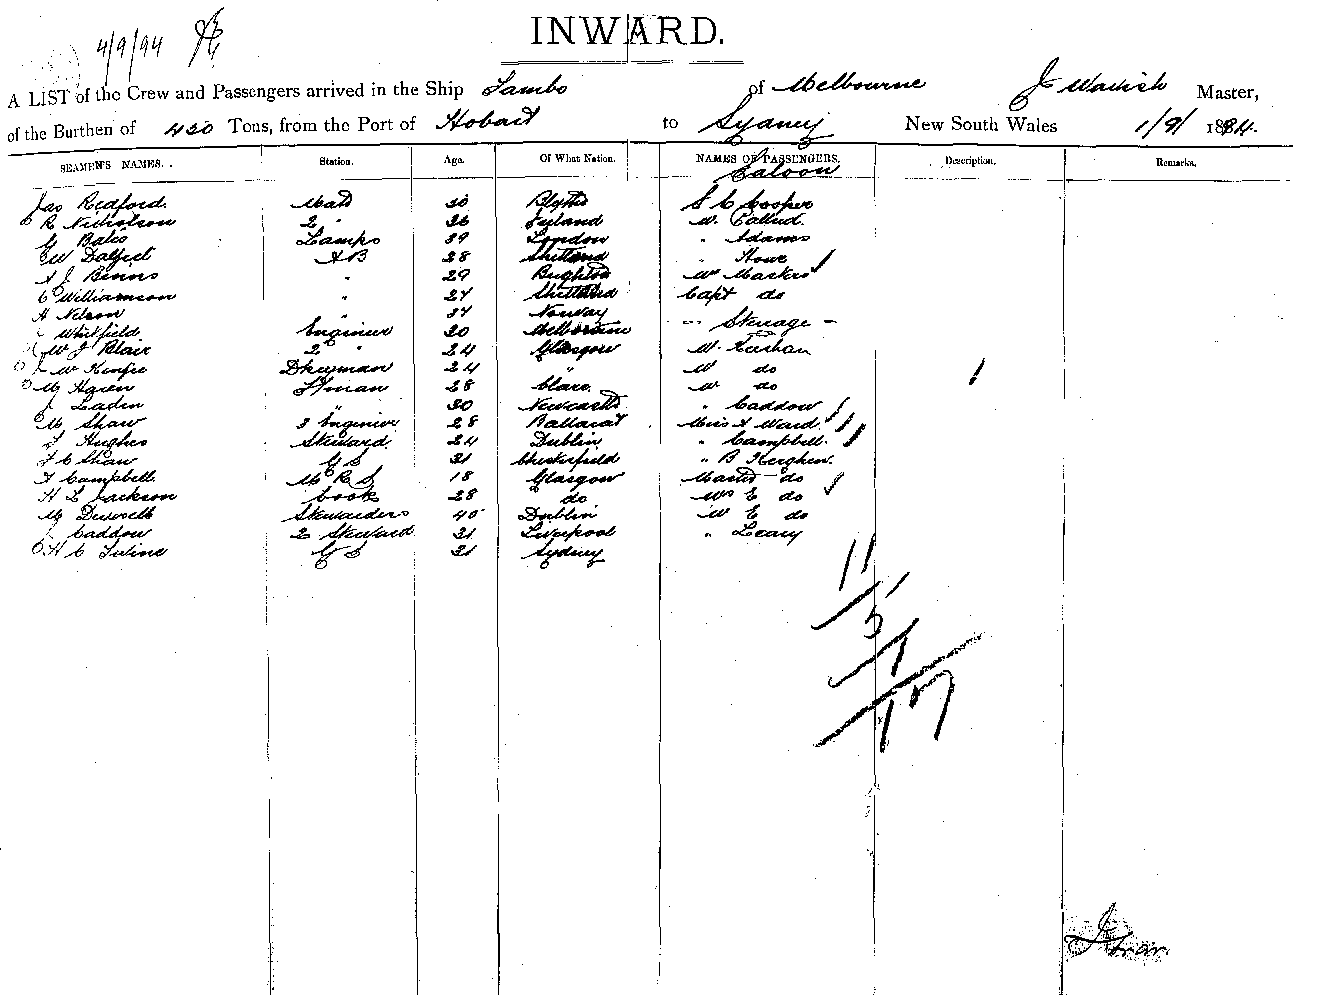 4/9/94
INWARD.
A LIST of the Crew and Passengers arrived in the Ship Tambo of Melbourne J Master,
of the Burthen of 420 Tons, from the Port of Hobart to Sydney New South Wales 1/9/1894.
SEAMEN'S NAMES. Station. Age. Of What Nation. NAMES OF PASSENGERS. Description. Remarks.
Saloon
Jas Redford. Mate 30 Blyth S C Cooper
R Nicholson 2 " 36 W.
G Bates Lamps 39 London " Adams
W AB 28 Shetland " Howe
A J Binns " 29 Brighton
C Williamson " 24 Shetland Capt do
H Nelson " 34 Norway
Whitfield Engineer 30 Melbourne Steerage
W J Blair 2 " 24 Glasgow W.
W 24 " W do
M 28 Clare. W do
J " 30 Newcastle " Caddow
M Shaw 3 Engineer 28 Ballarat Miss A Ward.
Hughes Steward. 24 Dublin " Campbell.
F C Shaw G S 21 Chesterfield " B
F Campbell. M R S 18 Glasgow Master do
H L Jackson Cook 28 do E do
M Stewardess 40 Dublin E do
J Caddow 2 Steward 21 Liverpool " Leary
H C G S 21 Sydney
11
5
1
17